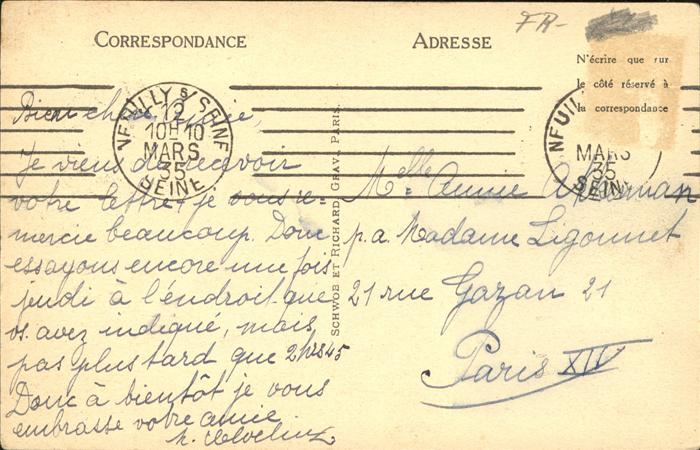 FR-
CORRESPONDANCE
ADRESSE
N'écrire que sur
le côté réservé à
la correspondance
NEUILLY S/ SEINE
12
10H10
MARS
35
SEINE
NEUIL
MARS
35
SEINE
Bien chère
Je viens de recevoir
votre lettre, je vous re-
mercie beaucoup. Donc
essayons encore une fois
jeudi à l'endroit que
vs. avez indiqué, mais
pas plus tard que 2hrs45
Donc à bientôt je vous
embrasse votre amie
SCHWOB ET RICHARD, GRAV. PARIS.
Melle Annie
p.a. Madame Ligonnet
21 rue Gazan 21
Paris XIV